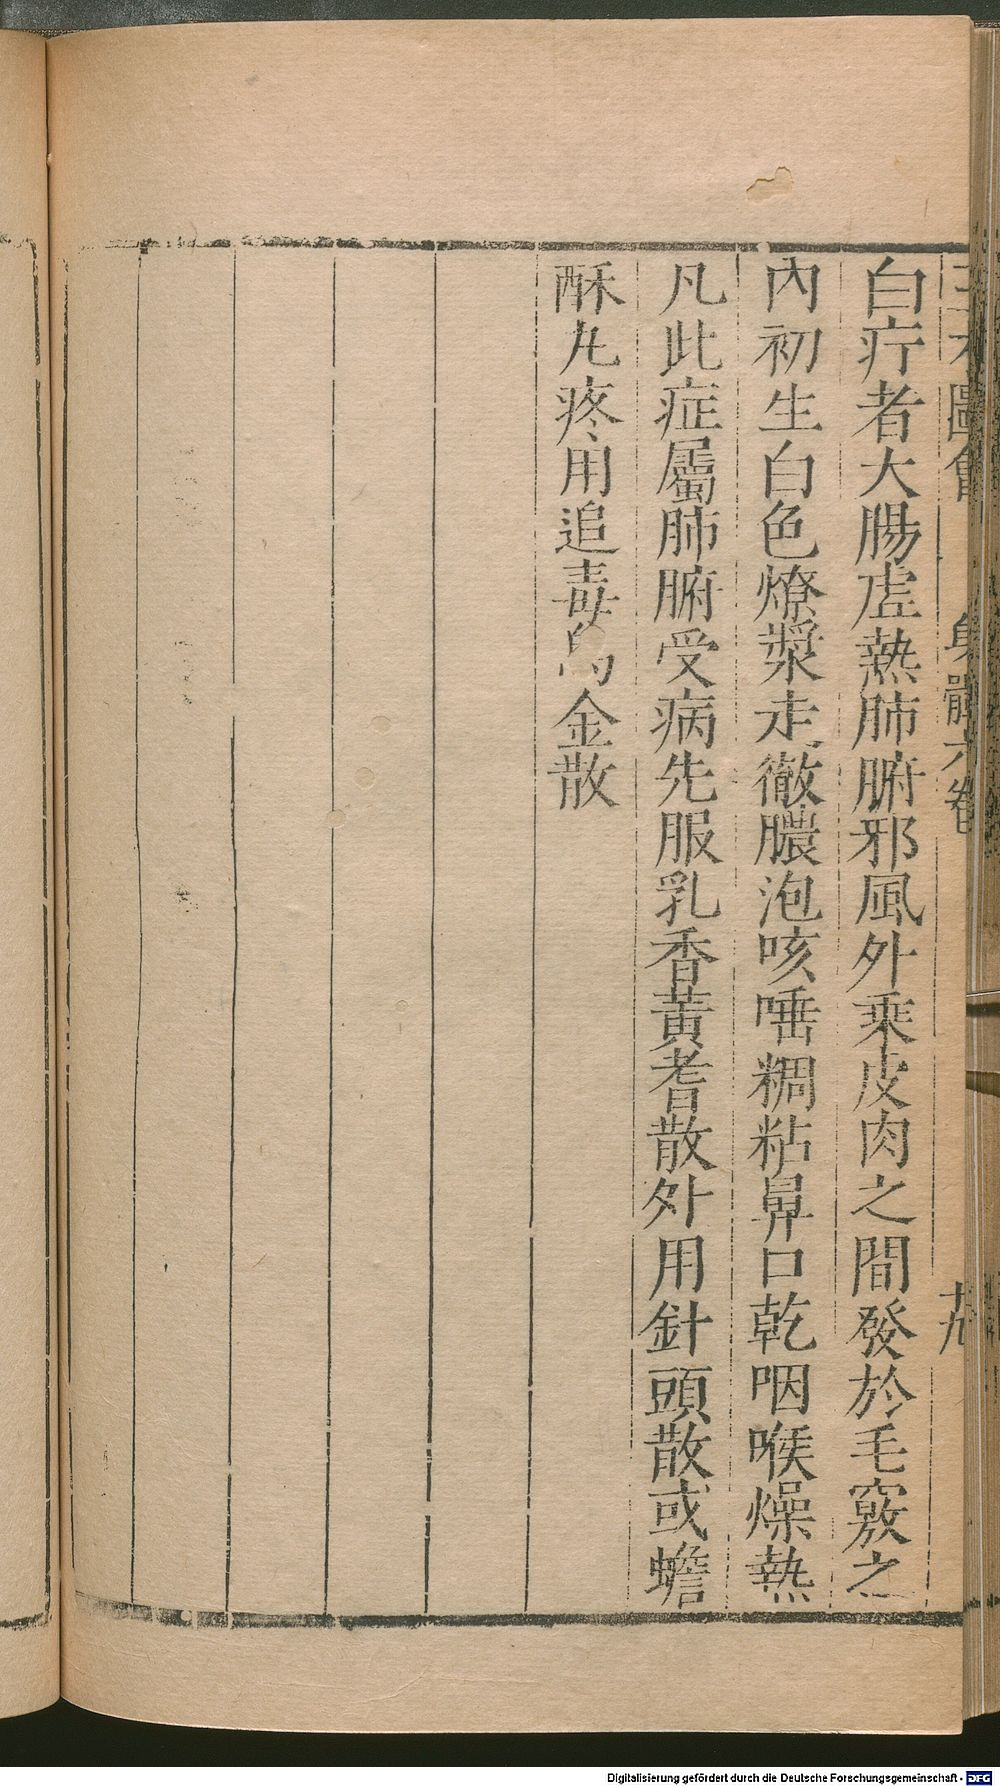 三才圖會 身體六卷 十九
白疔者大腸虛熱肺腑邪風外乘皮肉之間發於毛竅之
內初生白色燎漿走徹膿泡咳唾稠粘鼻口乾咽喉燥熱
凡此症屬肺腑受病先服乳香黃耆散外用針頭散或蟾
酥丸疼用追毒烏金散
Digitalisierung gefördert durch die Deutsche Forschungsgemeinschaft - DFG